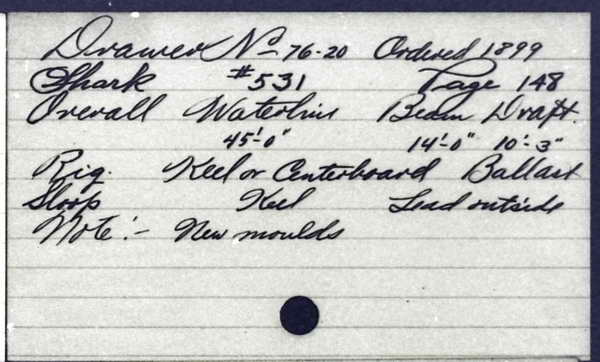 Drawer No 76-20 Ordered 1899
Shark #531 Page 148
Overall Waterline Beam Draft.
45'-0" 14'-0" 10'-3"
Rig. Keel or Centerboard Ballast
Sloop Keel Lead outside
Note:- New moulds